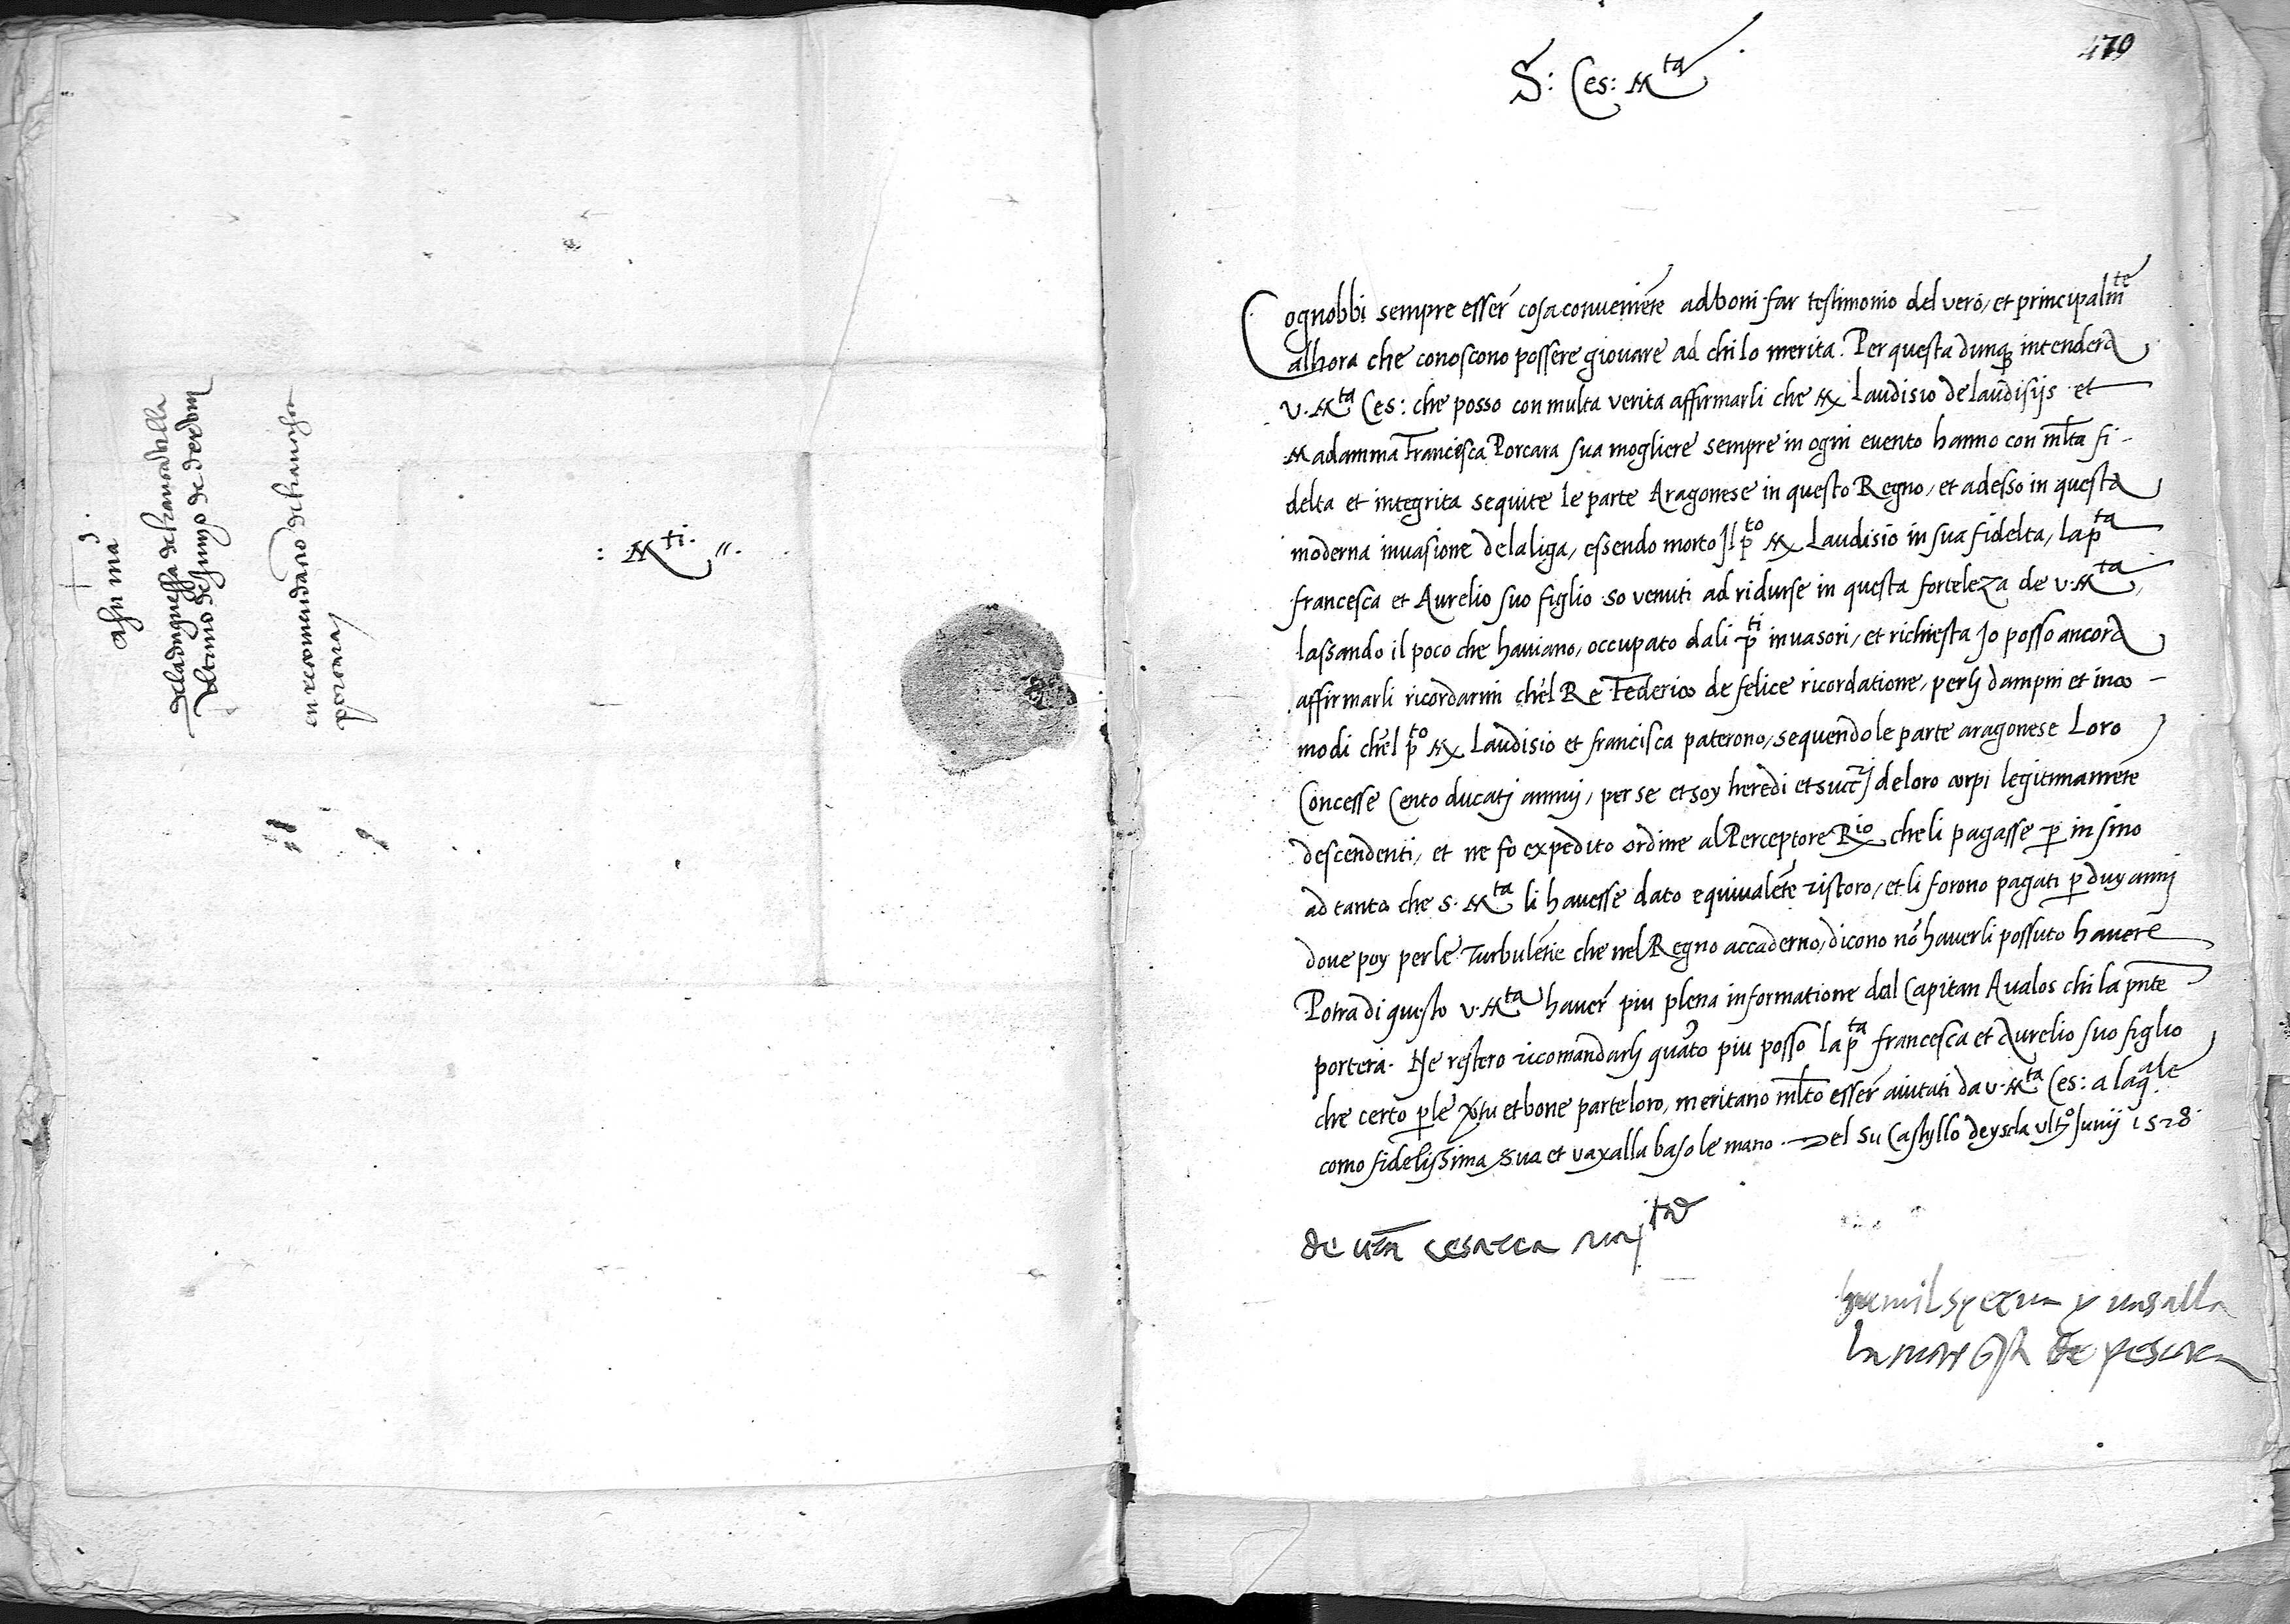 : Mti. "
en recomendaçio de francisca
porcara
479
S: Ces: Mta
Cognobbi sempre esser cosa conveniẽte ad boni far testimonio del vero, et principalmte
alhora che conoscono possere giovare ad chi lo merita. Per questa dunq intendera
v. Mta Ces: che posso con multa verita affirmarli che M Laudisio de laudisijs et
Madamma Francisca Porcara sua mogliere sempre in ogni evento hanno con mlta fi-
delta et integrita sequite le parte Aragonese in questo Regno, et adesso in questa
moderna invasione de la liga, essendo morto Il pto M Laudisio in sua fidelta, la pta
francesca et Aurelio suo figlio so venuti ad ridurse in questa forteleza de v. Mta,
lassando il poco che haviano, occupato dali pti invasori, et richiesta Io posso ancora
affirmarli ricordarmi chel Re Federico de felice ricordatione, per li dampni et inco-
modi chel pto M Laudisio et francisca paterono, sequendo le parte aragonese Loro
Concesse Cento ducati annuj, per se et soy heredi et succri de loro corpi legitimamẽte
descendenti, et ne fo expedito ordine al Perceptore Rio, che li pagasse p in sino
ad tanto che S. Mta li havesse dato equivalẽte ristoro, et li forono pagati p duy anni
dove poy per le Turbulẽtie che nel Regno accaderno, dicono nõ haverli possuto havere
Potra di questo v. Mta haver piu plena informatione dal Capitan Avalos chi la pnte
portera. Ne restero ricomandarli quãto piu posso la pta francesca et Aurelio suo figlio
che certo p le vtu et bone parte loro, meritano mlto esser aiutati da v. Mta Ces: a la qle
como fidelissima sua et vaxalla baso le mano. Del su Castyllo de yscla ulto Junij 1528
de vra cesarea majtad
humil syerva y vasalla
la marqsa de pescara